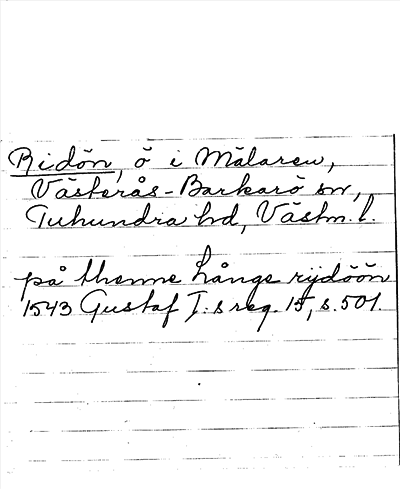 Ridön, ö i Mälaren,
Västerås-Barkarö sn,
Tuhundra hd, Västm. l.
på thenne långe rijdöön
1543 Gustaf I:s reg. 15, s. 501.